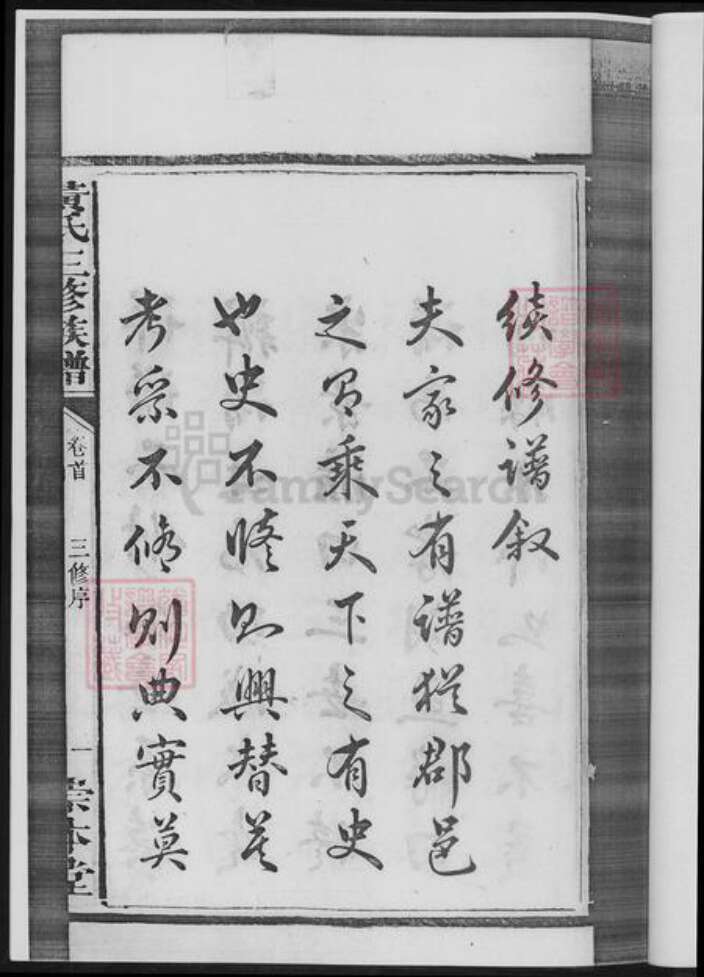 續修譜叙
夫家之有譜猶郡邑
之有乘天下之有史
也史不脩則興替莫
考乘不修則典實莫
黃氏三修族譜
卷首
三修序
一
崇本堂
FamilySearch